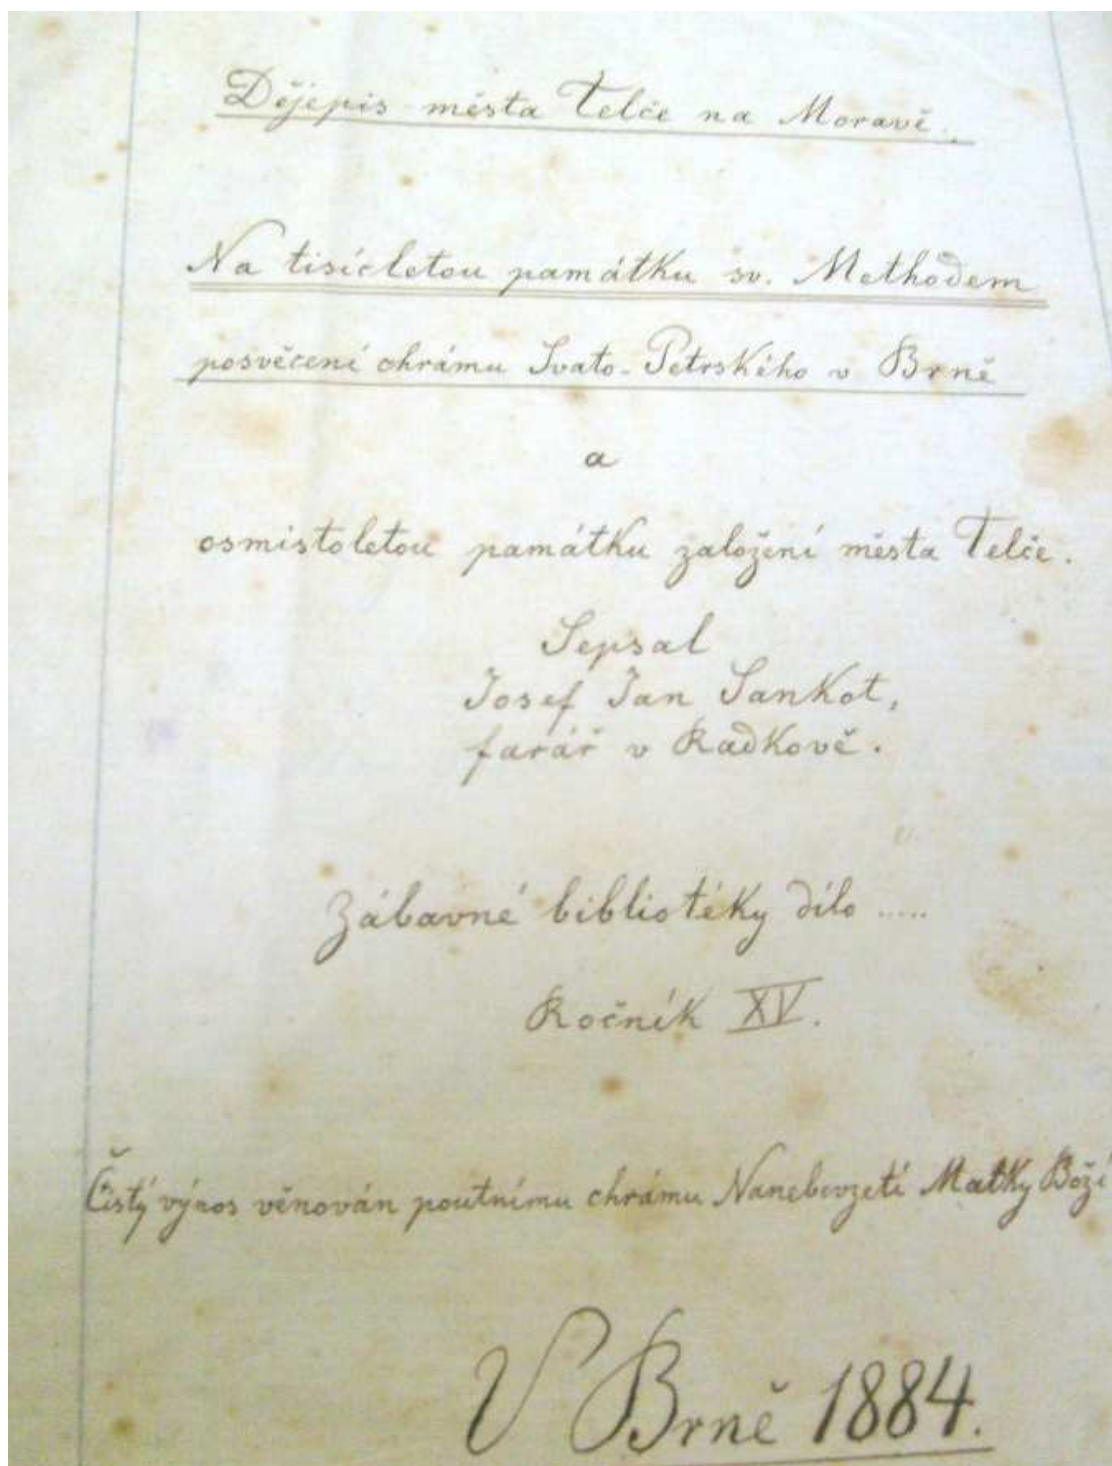 Dějepis města Telče na Moravě.
Na tisícletou památku sv. Methodem
posvěcení chrámu Svato-Petrského v Brně
a
osmistoletou památku založení města Telče.
Sepsal
Josef Jan Sankot,
farář v Radkově.
Zábavné bibliotéky dílo .....
Ročník XV.
Čistý výnos věnován poutnímu chrámu Nanebevzetí Matky Boží
V Brně 1884.